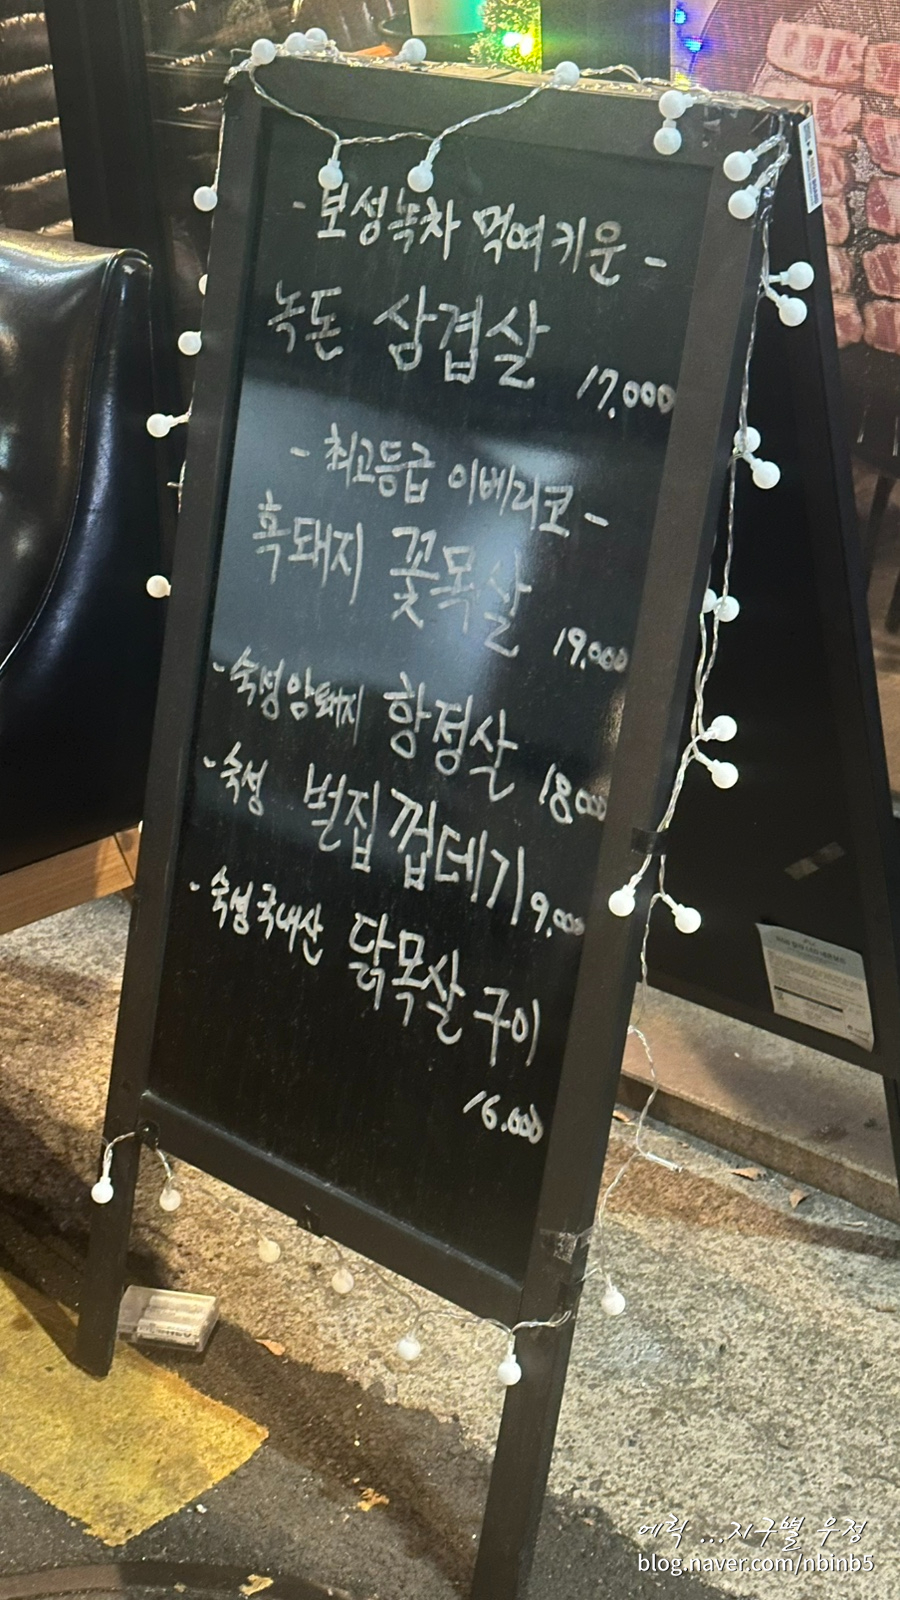 - 보성녹차 먹여키운 -
녹돈 삼겹살
17,000
- 최고등급 이베리코 -
흑돼지 꽃목살
19,000
- 숙성암퇘지 항정살
18,000
- 숙성 벌집 껍데기 9,000
- 숙성국내산 닭목살 구이
16,000
에릭 ...지구별 우정
blog.naver.com/nbinb5